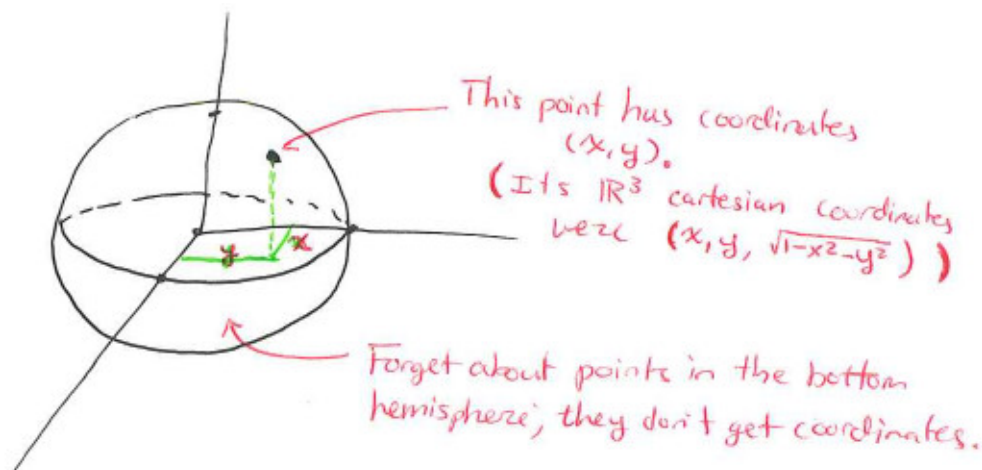 This point has coordinates
(x,y).
(Its ℝ³ cartesian coordinates
were (x,y, √1-x²-y²))
y
x
Forget about points in the bottom
hemisphere, they don't get coordinates.